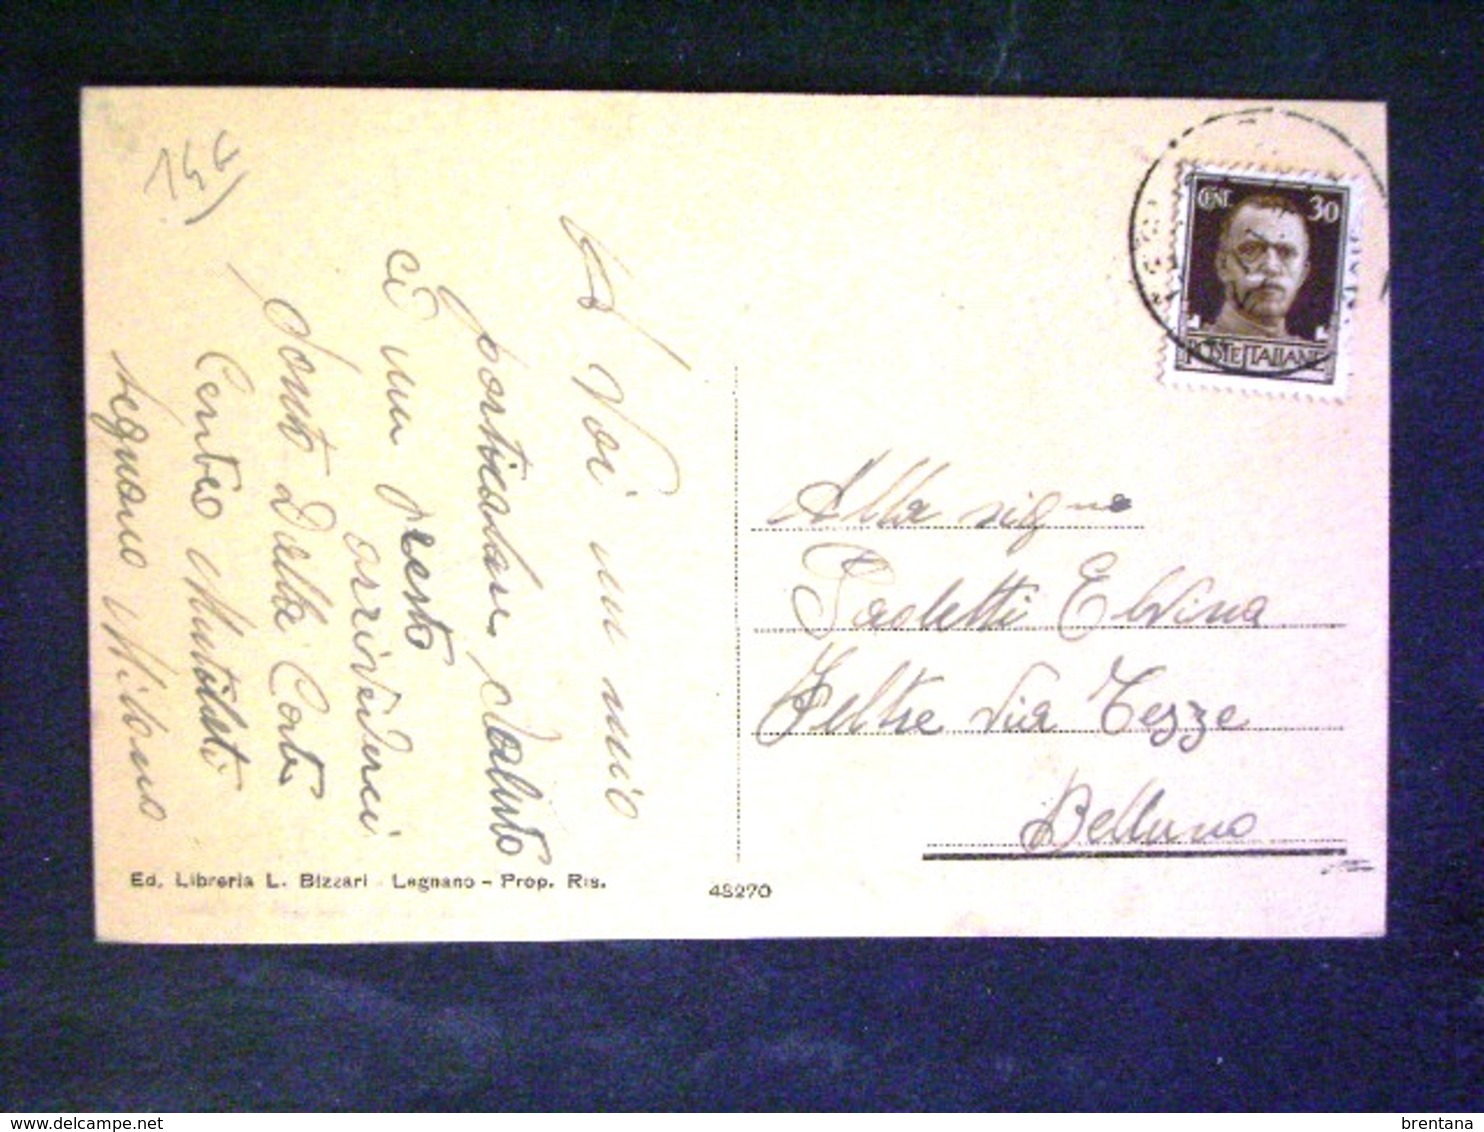 A Voi un mio
particolare saluto
ed un presto
arrivederci
Dalla Corte
Centro Mutilati
Legnano Milano
Ed. Libreria L. Bizzari - Legnano - Prop. Ris.
48270
CENT. 30
POSTE ITALIANE
Alla sigᵐᵃ
Paoletti Elvina
Feltre Via Tezze
Belluno
brentana
www.delcampe.net